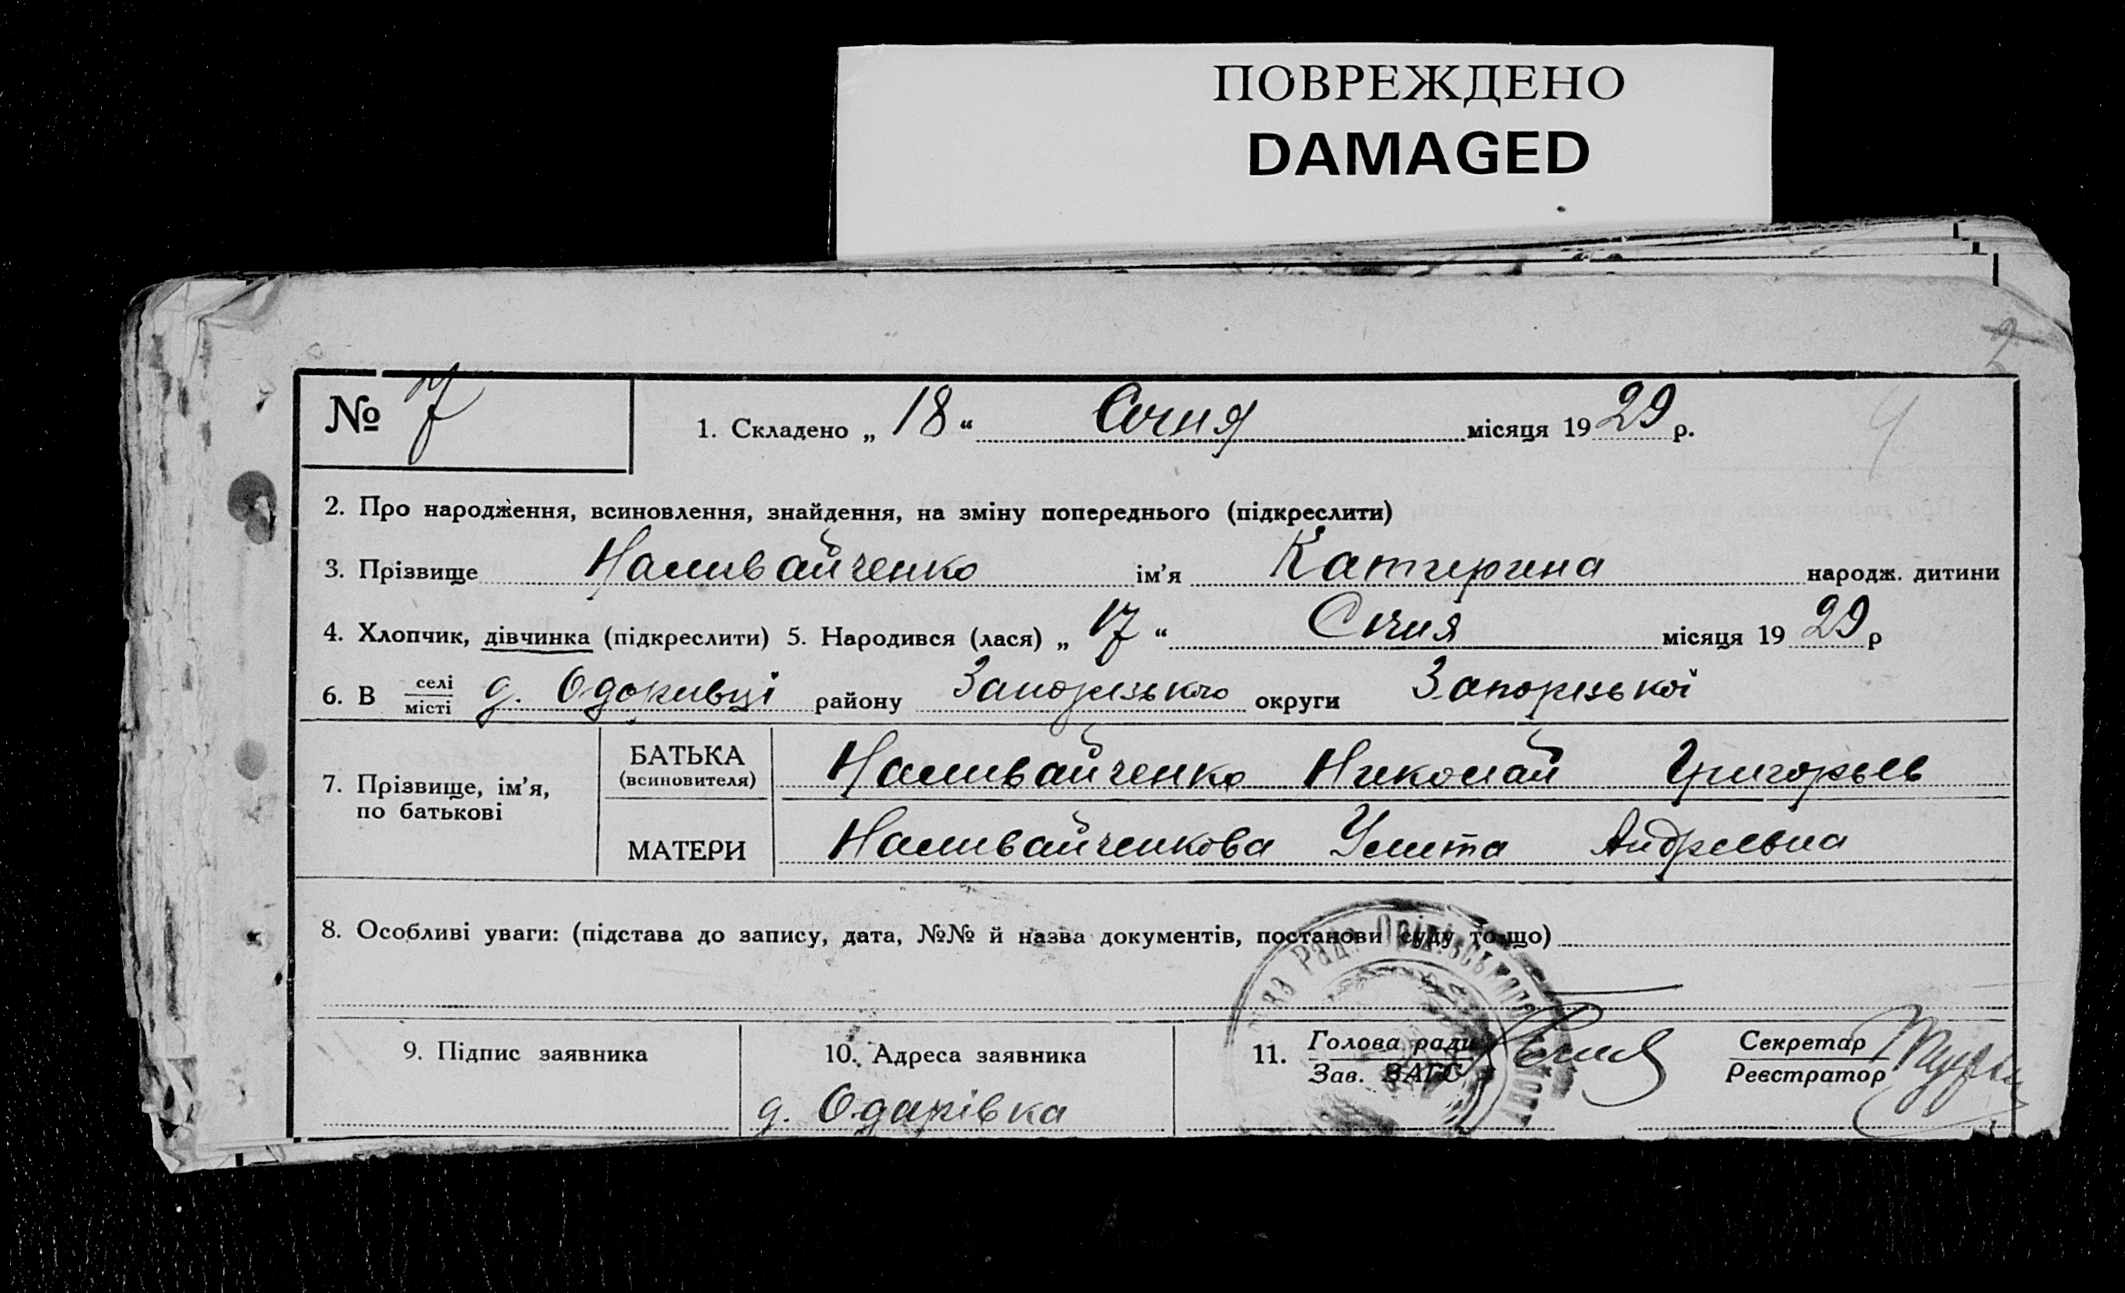 ПОВРЕЖДЕНО
DAMAGED
№ 7
1. Складено „ 18 “ Сочня місяця 19 29 р.
2. Про народження, всиновлення, знайдення, на зміну попереднього (підкреслити)
3. Прізвище Наливайченко ім’я Катирина народж. дитини
4. Хлопчик, дівчинка (підкреслити) 5. Народився (лася) „ 17 “ Січня місяця 19 29 р
6. В селі місті д. Одоривці району Запорізького округи Запорізької
7. Прізвище, ім’я, по батькові
БАТЬКА (всиновителя) Наливайченко Николай Григорьев
МАТЕРИ Наливайченкова Улита Андреевна
8. Особливі уваги: (підстава до запису, дата, №№ й назва документів, постанови суду то-що)
9. Підпис заявника
10. Адреса заявника
д. Одарівка
11. Голова ради
Зав. ЗАГС
Секретар
Реєстратор